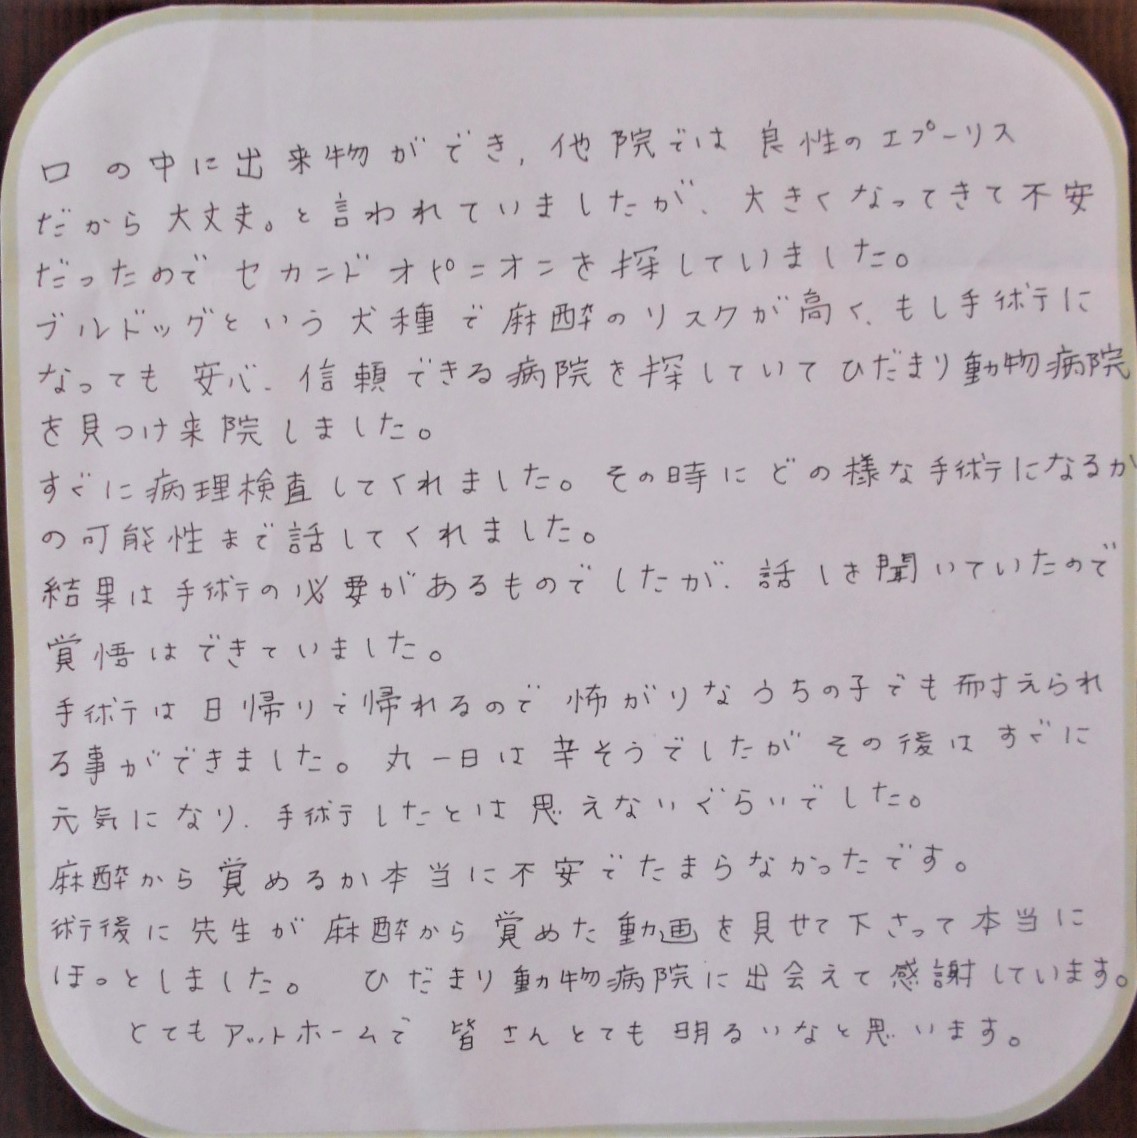 口の中に出来物ができ,他院では良性のエプーリス
だから大丈夫。と言われていましたが、大きくなってきて不安
だったのでセカンドオピニオンを探していました。
ブルドッグという犬種で麻酔のリスクが高く、もし手術に
なっても安心、信頼できる病院を探していてひだまり動物病院
を見つけ来院しました。
すぐに病理検査してくれました。その時にどの様な手術になるか
の可能性まで話してくれました。
結果は手術の必要があるものでしたが、話しを聞いていたので
覚悟はできていました。
手術は日帰りで帰れるので怖がりなうちの子でも耐えられ
る事ができました。丸一日は辛そうでしたがその後はすぐに
元気になり、手術したとは思えないぐらいでした。
麻酔から覚めるか本当に不安でたまらなかったです。
術後に先生が麻酔から覚めた動画を見せて下さって本当に
ほっとしました。 ひだまり動物病院に出会えて感謝しています。
とてもアットホームで皆さんとても明るいなと思います。